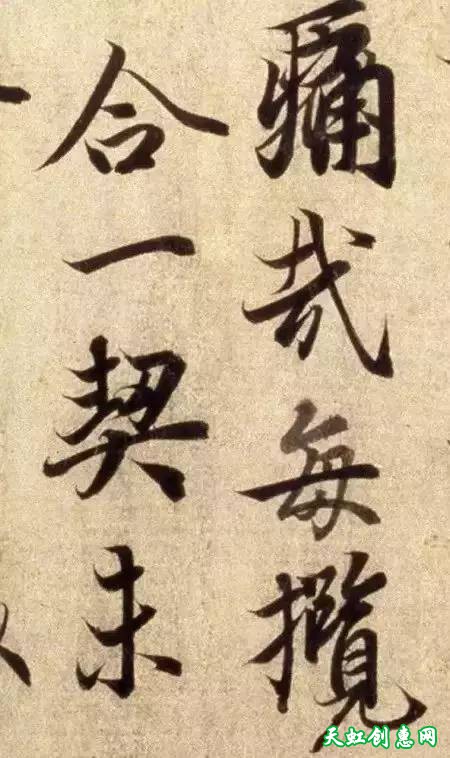 痛哉每攬
合一契未
天虹创惠网